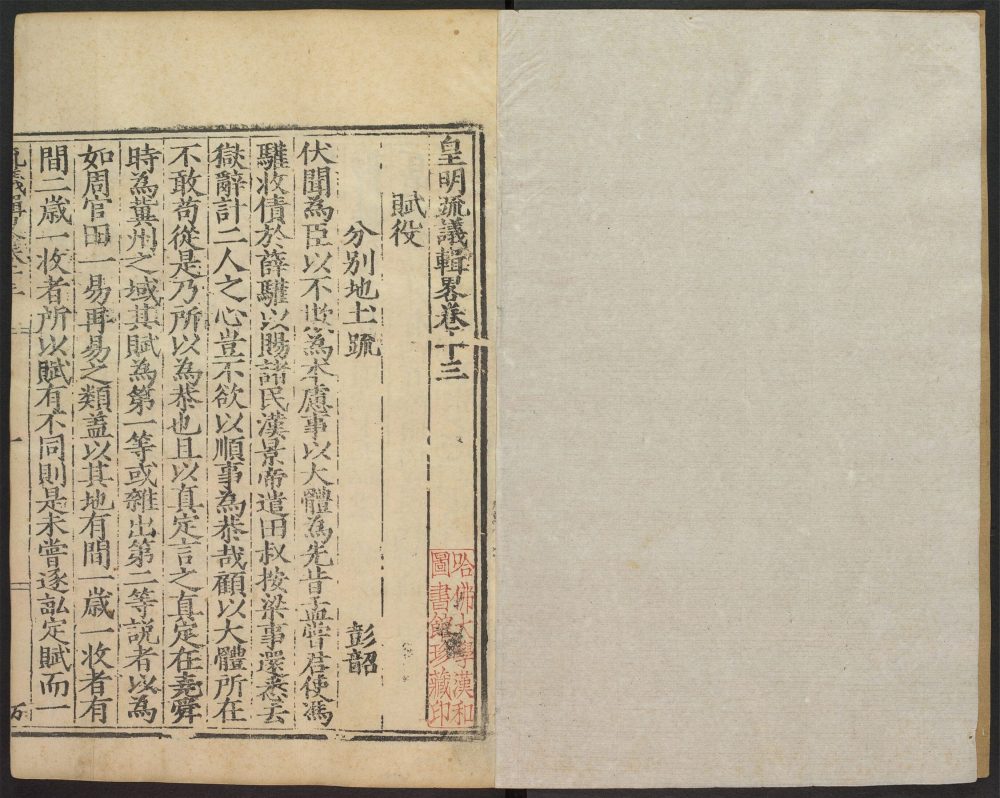 皇明疏議輯畧卷十三
賦役
分別地土疏
彭韶
伏聞為臣以不欺為本慮事以大體為先昔孟嘗君使馮
驩收債於薛驩以賜諸民漢景帝遣田叔按梁事還悉去
獄辭計二人之心豈不欲以順事為恭哉顧以大體所在
不敢苟從是乃所以為恭也且以真定言之真定在堯舜
時為冀州之域其賦為第一等或雜出第二等説者以為
如周官田一易再易之類盖以其地有間一歳一收者有
間二歳一收者所以賦有不同則是未嘗逐畝定賦而一
卷十三
一
万
哈佛大學漢和
圖書館珍藏印